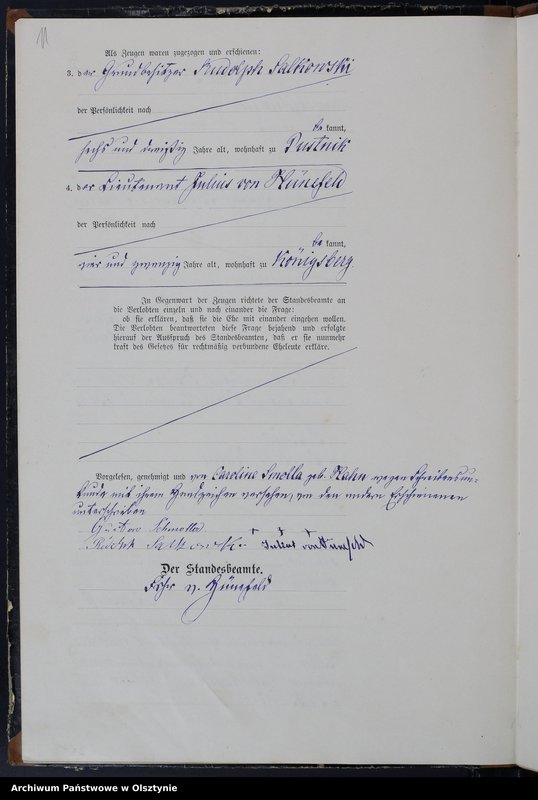 11
Als Zeugen waren zugezogen und erschienen:
3. der Grundbesitzer Rudolph Salkowski
der Persönlichkeit nach
be kannt,
sechs und dreißig Jahre alt, wohnhaft zu Pustnik
4. der Lieutenant Julius von Hünefeld
der Persönlichkeit nach
be kannt,
vier und zwanzig Jahre alt, wohnhaft zu Königsberg.
In Gegenwart der Zeugen richtete der Standesbeamte an
die Verlobten einzeln und nach einander die Frage:
ob sie erklären, daß sie die Ehe mit einander eingehen wollen.
Die Verlobten beantworteten diese Frage bejahend und erfolgte
hierauf der Ausspruch des Standesbeamten, daß er sie nunmehr
kraft des Gesetzes für rechtmäßig verbundene Eheleute erkläre.
Vorgelesen, genehmigt und von Caroline Smolla geb. Hahn wegen Schreibensun-
kunde mit ihrem Handzeichen versehen, von den andern Erschienenen
unterschrieben
Gustav
+ + +
Salkowski Julius von Hünefeld
Der Standesbeamte.
v. Hünefeld
Archiwum Państwowe w Olsztynie